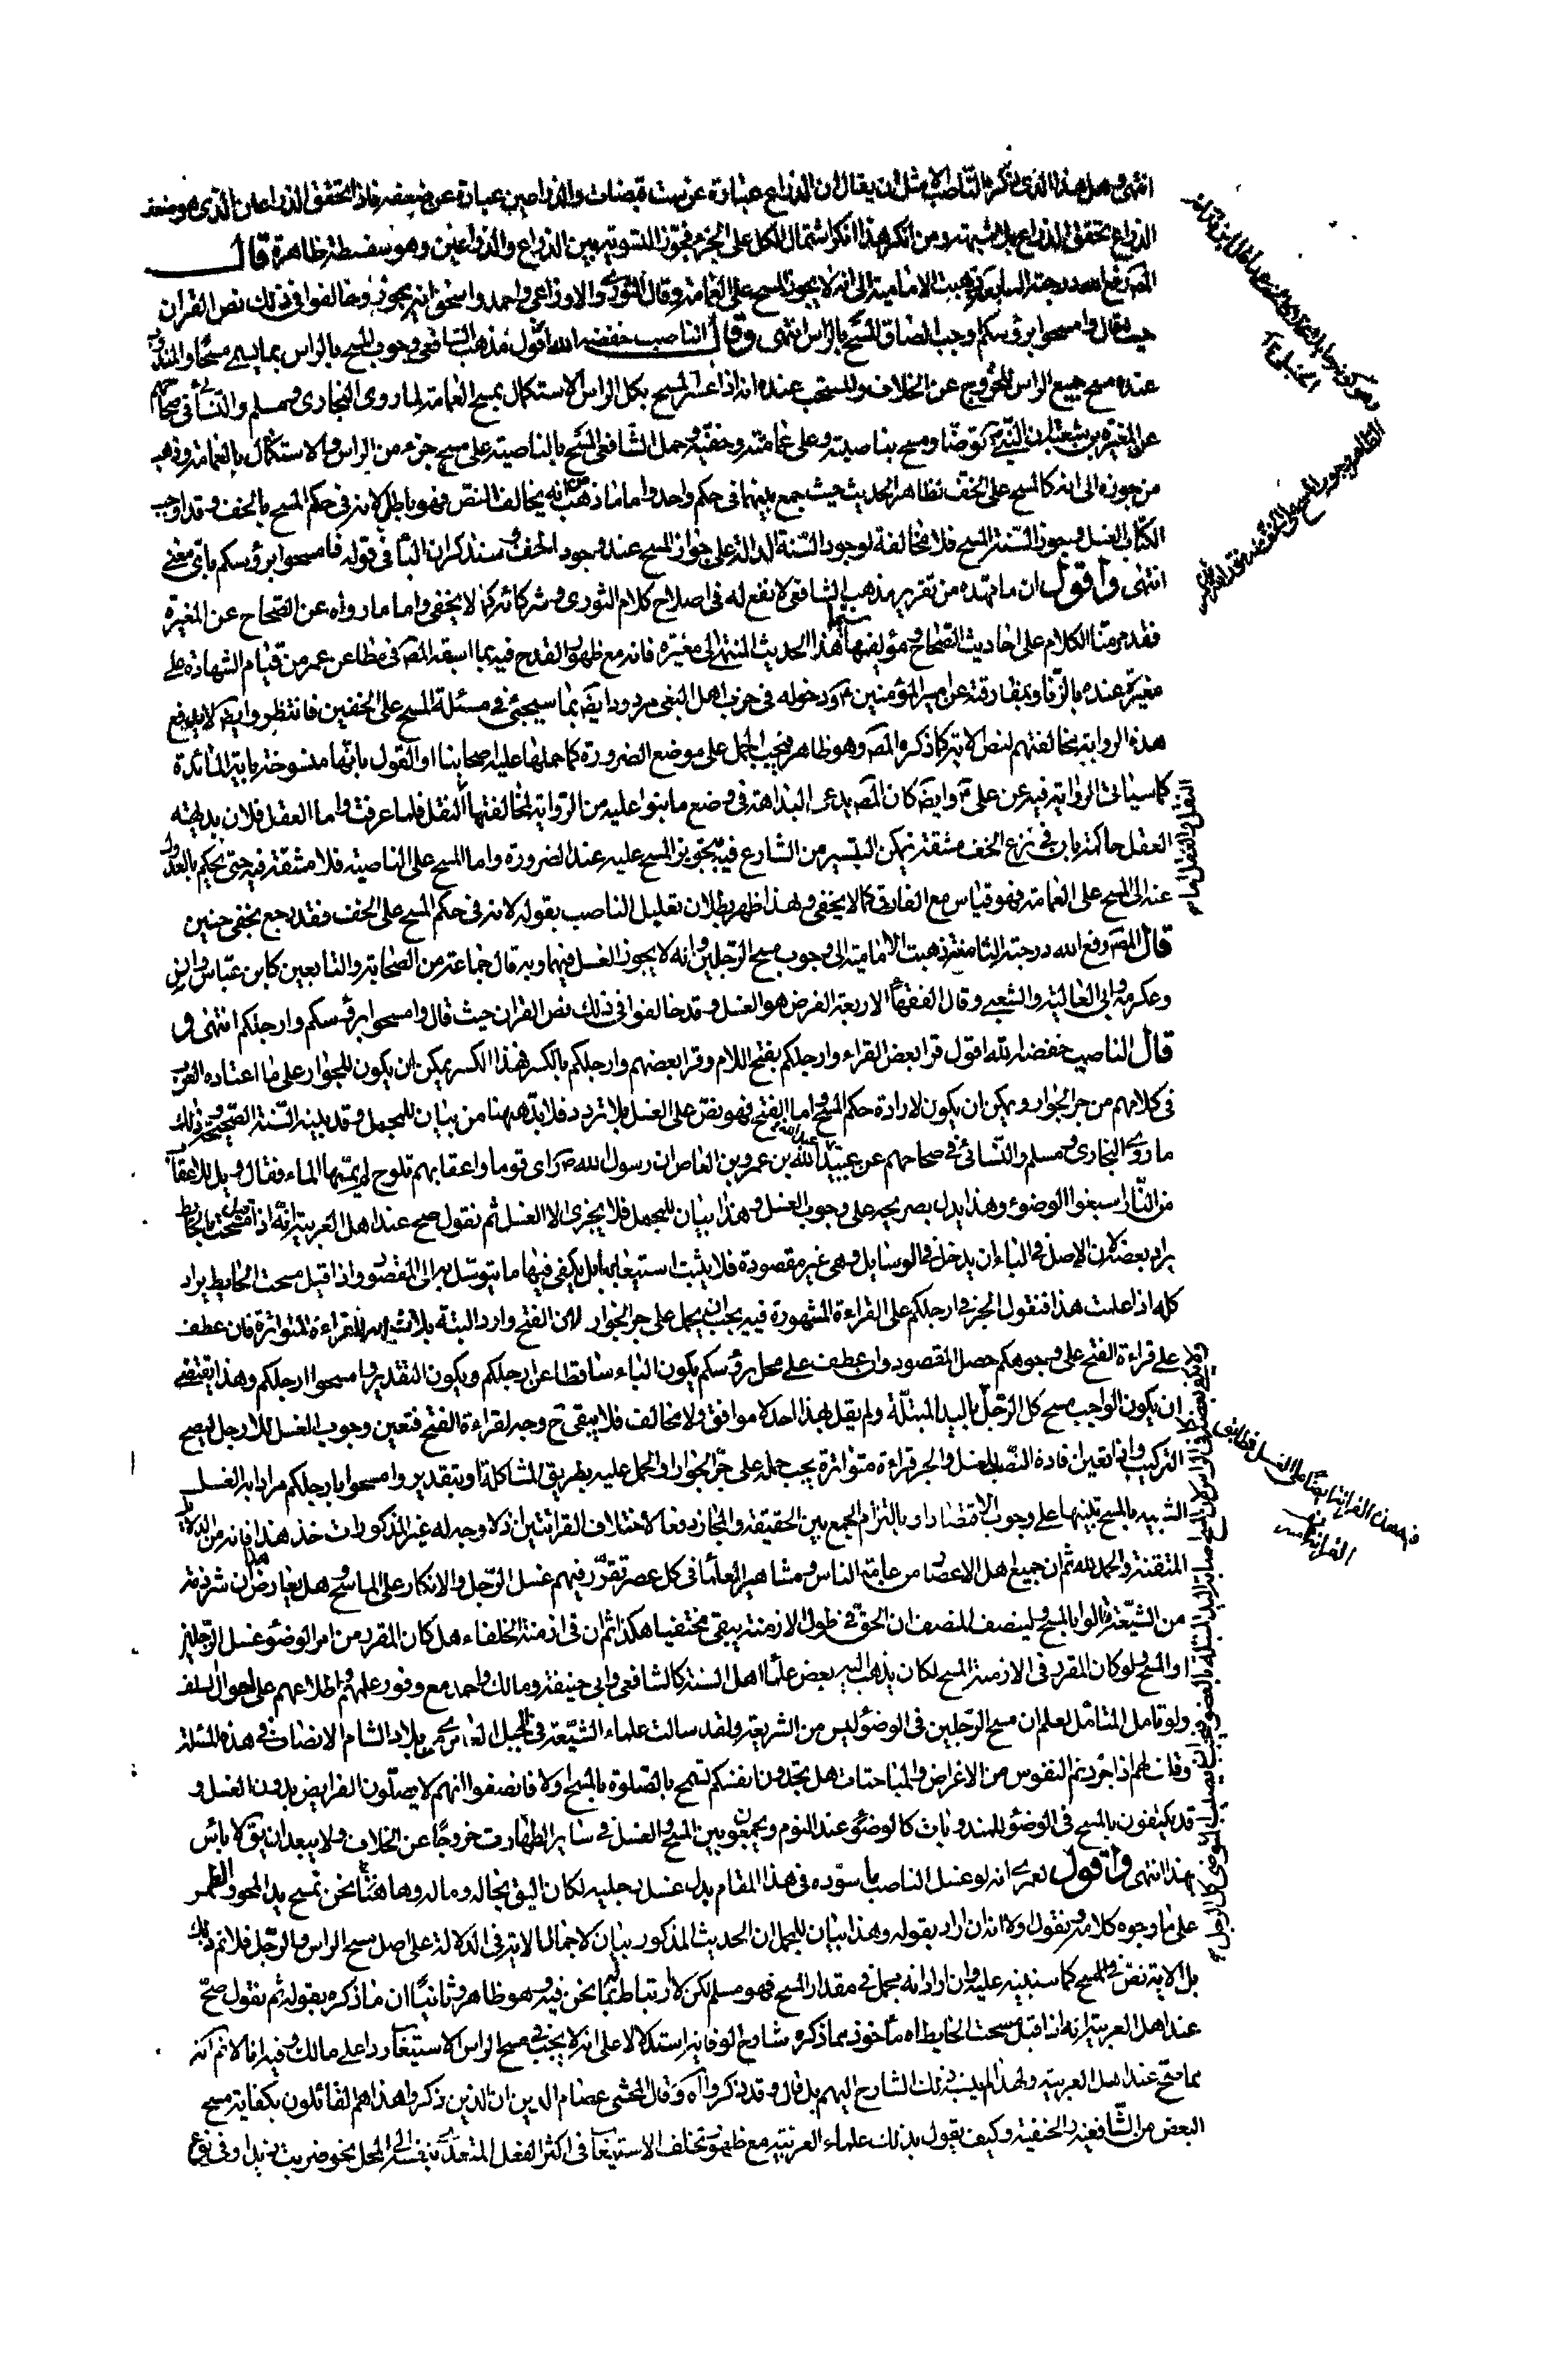 انتهى وهل هذا الذى ذكره الناصب الا مثل ان يقال ان الذراع عبارة عن ست قبضات والذراعين عبارة عن ضعفه فاذا تحقق الذراعان الذى هو ضعف
الذراع تحقق الذراع بلا شبهة ومن انكر هذا انكر اشتمال الكل على الجزء فجوز التسوية بين الذراع والذراعين وهو سفسطة ظاهرة قال
المص رفع الله درجته السابعة ذهبت الامامية الى انه لا يجوز المسح على العمامة وقال الثورى والاوزاعى واحمد واسحق انه يجوز وخالفوا فى ذلك نص القران
حيث قال وامسحوا برؤسكم وجب الصاق المسح بالراس انتهى وقال الناصب خفضه الله اقول مذهب الشافعى وجوب المسح بالراس بما يسمى مسحا والمندوب
عنده مسح جميع الراس للخروج عن الخلاف والمستحب عنده انه اذا عسر المسح بكل الراس الاستكمال بمسح العمامة لما روى البخارى ومسلم والنسائى فى صحاحهم
عن المغيرة بن شعبة ان النبى ص توضا ومسح بناصيته وعلى عمامته وخفيه وحمل الشافعى المسح بالناصية على مسح جزء من الراس والاستكمال بالعمامة وذهب
من جوزه الى انه كالمسح على الخف لظاهر الحديث حيث جمع بينهما فى حكم واحد واما ما ذهب انه يخالف النص فهو باطل لانه فى حكم المسح بالخف وقد اوجب
الكتاب الغسل وجوز السنة المسح فلا مخالفة لوجود السنة الدالة على جواز المسح عند وجود الخف وسنذكر ان البا فى قوله فامسحوا برؤسكم باى معنى
انتهى واقول ان ما مهده من تقرير مذهب الشافعى لا نفع له فى اصلاح كلام الثورى وشركائه كما لا يخفى واما ما رواه عن الصحاح عن المغيرة
فقد مر منا الكلام على احاديث الصحاح ومؤلفيها سيما هذا الحديث المنتهى الى مغيرة فانه مع ظهور القدح فيه بما اسبقه المص فى مطاعن عمر من قيام الشهادة على
مغيرة عنده بالزنا وبمفارقته عن امير المؤمنين ع ودخوله فى حزب اهل البغى مردود ايضا بما سيجئ فى مسئلة المسح على الخفين فانتظر وايضا لا يدفع
هذه الرواية مخالفتهم لنص الاية كما ذكره المص وهو ظاهر فيجب الحمل على موضع الضرورة كما حملها عليه اصحابنا او القول بانها منسوخة باية المائدة
كما سياتى الرواية فيه عن على ع وايضا كان المص يدعى البداهة فى وضع ما بنوا عليه من الرواية لمخالفتها النقل فلما عرفت واما العقل فلان بديهته
العقل حاكمة بان فى نزع الخف مشقة يمكن التيسير من الشارع فيه بتجويز المسح عليه عند الضرورة واما المسح على الناصية فلا مشقة فيه حتى يحكم بالعدول
عنه الى المسح على العمامة فهو قياس مع الفارق كما لا يخفى وبهذا ظهر بطلان تعليل الناصب بقوله لانه فى حكم المسح على الخف فقد رجع بخفى حنين
قال المص رفع الله درجته الثامنة ذهبت الامامية الى وجوب مسح الرجلين وانه لا يجوز الغسل فيهما وبه قال جماعة من الصحابة والتابعين كابن عباس وانس
وعكرمة وابى العالية والشعبى وقال الفقهاء الاربعة الفرض هو الغسل وقد خالفوا فى ذلك نص القران حيث قال وامسحوا برؤسكم وارجلكم انتهى و
قال الناصب خفضه الله اقول قرا بعض القراء وارجلكم بفتح اللام وقرا بعضهم وارجلكم بالكسر فهذا الكسر يمكن ان يكون للجوار على ما اعتاده العرب
فى كلامهم من جر الجوار ويمكن ان يكون لارادة حكم المسح واما الفتح فهو نص على الغسل بلا تردد فلا بد ههنا من بيان للمجمل وقد بينه السنة الصحيحة وذلك
ما روى البخارى ومسلم والنسائى فى صحاحهم عن عبيد الله بن عمرو بن العاص ان رسول الله ص راى قوما واعقابهم تلوح لم يمسها الماء فقال ويل للاعقاب
من النار اسبغوا الوضوء وهذا يدل بصريحه على وجوب الغسل وهذا بيان للمجمل فلا يجزى الا الغسل ثم نقول صح عند اهل العربية انه اذا قيل مسحت بالحايط
يراد بعضه لان الاصل فى الباء ان يدخل فى الوسايل وهى غير مقصودة فلا يثبت استيعابها بل يكفى فيها ما يتوسل به الى المقصود واذا قيل مسحت الحايط يراد
كله اذا علمت هذا فنقول الجر فى ارجلكم على القراءة المشهورة فيه يجب ان يحمل على جر الجوار لان الفتح وارد البتة بلا شبهة للقراءة المتواترة فان عطف
على قراءة الفتح على وجوهكم حصل المقصود وان عطف على محل برؤسكم يكون الباء ساقطا عن ارجلكم ويكون التقدير وامسحوا ارجلكم وهذا يقتضى
ان يكون الواجب مسح كل الرجل باليد المبتلة ولم يقل بهذا احد لا موافق ولا مخالف فلا يبقى ح وجه لقراءة الفتح فتعين وجوب الغسل للارجل ليصح
التركيب واذا تعين افادة النصب للغسل والجر قراءة متواترة يجب حمله على جر الجوار او الحمل عليه بطريق المشاكلة او بتقدير وامسحوا بارجلكم مرادا به الغسل
الشبيه بالمسح تنبيها على وجوب الاقتصاد او بالتزام الجمع بين الحقيقة والمجاز دفعا لاختلاف القرائتين اذ لا وجه له غير المذكورات خذ هذا فانه من الدلايل
المتقنة والحمد لله ثم ان جميع اهل الاعصار من عامة الناس ومشاهير العلماء فى كل عصر تقرر فيهم غسل الرجل والانكار على الماسح وهل يعارض هذا ان شرذمة
من الشيعة قالوا بالمسح ولينصف المنصف ان الحق فى طول الازمنة يبقى مختفيا هكذا ثم ان فى ازمنة الخلفاء هل كان المقرر من امر الوضوء غسل الرجلين
او المسح ولو كان المقرر فى الازمنة المسح لكان يذهب اليه بعض علماء اهل السنة كالشافعى وابى حنيفة ومالك واحمد مع وفور علمهم واطلاعهم على احوال السلف
ولو تامل المتامل لعلم ان مسح الرجلين فى الوضوء ليس من الشريعة ولقد سالت علماء الشيعة فى الجبل العامرى بلاد الشام الانصاف فى هذه المسئلة
وقلت لهم اذا جردتم النفوس من الاغراض والمباحثات هل تجدون انفسكم تسمح بالصلوة بالمسح او لا فانصفوا انهم لا يصلون الفرايض بدون الغسل و
قد يكتفون بالمسح فى الوضوء للمندوبات كالوضوء عند النوم ويجمعون بين المسح والغسل فى ساير الطهارت خروجا عن الخلاف ولا يبعد ان يق لا باس
بهذا انتهى واقول لعمرى انه لو غسل الناصب ما سوده فى هذا المقام بدل غسل رجليه لكان اليق بحاله وماله وها نحن نمسح يد المحو
على ما وجوه كلامه ونقول اولا انه ان اراد بقوله وهذا بيان للمجمل ان الحديث المذكور بيان لاجمال الاية فى الدلالة على اصل مسح الراس والرجل فلا تم ذلك
بل الاية نص فى المسح كما سنبينه عليه وان اراد انه مجمل فى مقدار المسح فهو مسلم لكن لا ارتباط له بما نحن فيه وهو ظاهر وثانيا ان ما ذكره بقوله ثم نقول صح
عند اهل العربية انه اذا قيل مسحت الحايط اه مأخوذ مما ذكره شارح الوقاية استدلالا على انه لا يجب فى مسح الراس الاستيعاب ردا على مالك وفيه انا لا نم انه
مما صح عند اهل العربية ولهذا لم ينسب ذلك الشارح اليهم بل قال وقد ذكروا اه وقال المحشى عصام الدين ان الذين ذكروا هذا هم القائلون بكفاية مسح
البعض من الشافعية والحنفية وكيف يقول بذلك علماء العربية مع ظهور تخلف الاستيعاب فى اكثر الفعل المتعدى بنفسه الى المحل نحو ضربت زيدا وفى نوع